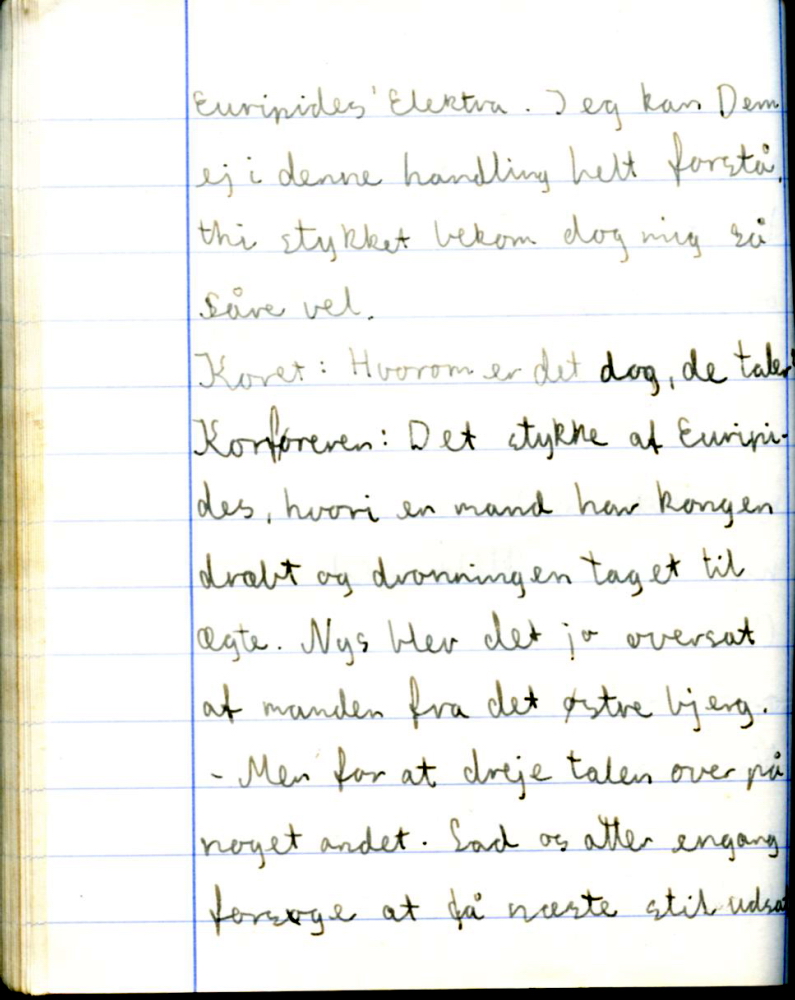 Euripides' Elektra. Jeg kan Dem
ej i denne handling helt forstå,
thi stykket bekom dog mig så
såre vel.
Koret: Hvorom er det dog, de taler?
Korføreren: Det stykke af Euripi-
des, hvori en mand har kongen
dræbt og dronningen taget til
ægte. Nys blev det jo oversat
af manden fra det østre bjerg.
- Men for at dreje talen over på
noget andet. Lad os atter engang
forsøge at få næste stil udsat